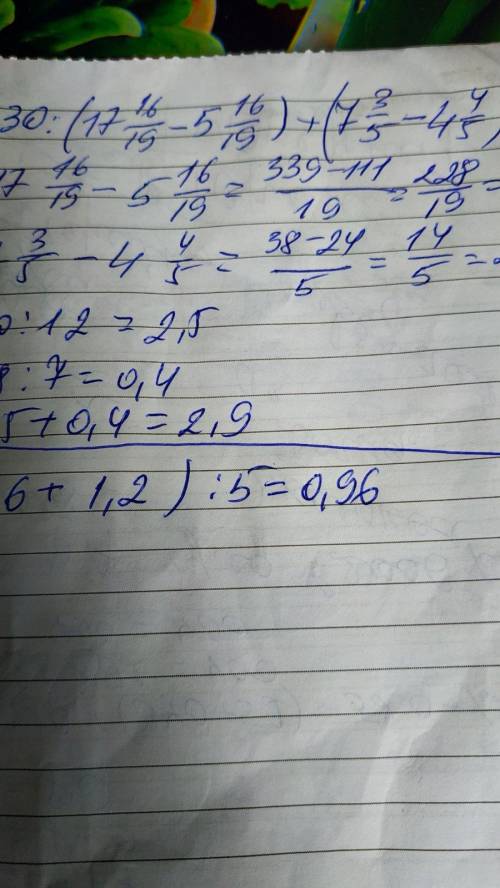 30:(17 16/19 - 5 16/19) + (7 3/5 - 4 4/5)
7 16/19 - 5 16/19 = (339-111)/19 = 228/19 =
3/5 - 4 4/5 = (38-24)/5 = 14/5 =
:12 = 2,5
:7 = 0,4
5+0,4 = 2,9
6+1,2):5 = 0,96